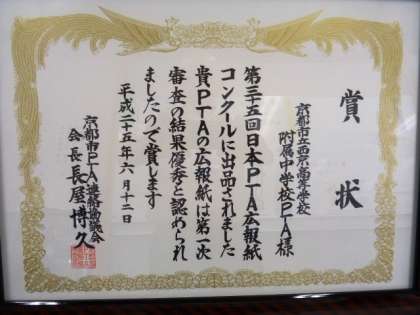 賞状
京都市立西京高等学校
附属中学校PTA様
第三十五回日本PTA広報紙
コンクールに出品されました
貴PTAの広報紙は第一次
審査の結果優秀と認められ
ましたので賞します
平成二十五年六月十二日
京都市PTA連絡協議会
会長長屋博久